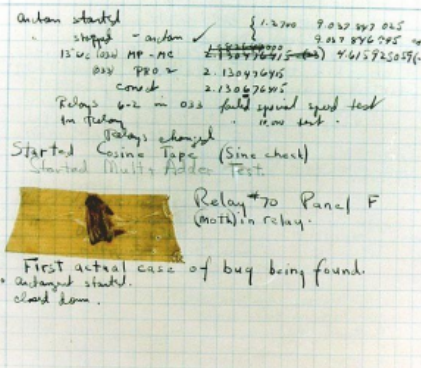 antan started
stopped - antan ✓ { 1.2700 9.037 847 025
9.037 846 995
13" uc (033) MP - MC 2.130476415 4.615925059(
(033) PRO 2 2.130476415
correct 2.130676415
Relays 6-2 in 033 failed special speed test
in relay " 10.000 test .
Relays changed
Started Cosine Tape (Sine check)
Started Mult+ Adder Test.
Relay #70 Panel F
(moth) in relay.
First actual case of bug being found.
antangent started.
closed down.